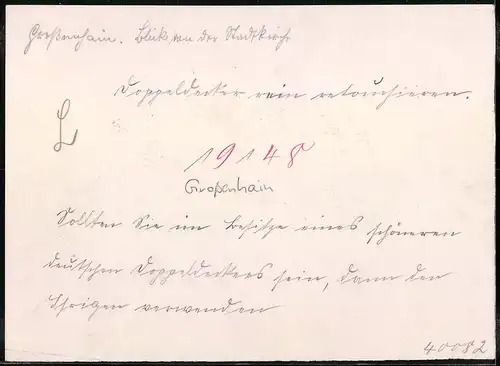 Großenhain. Blick von der Stadtkirche
Doppeldecker rein retouchieren.
L
19148
Großenhain
Sollten Sie im Besitze eines schöneren
deutschen Doppeldeckers sein, dann den
Ihrigen verwenden
40082